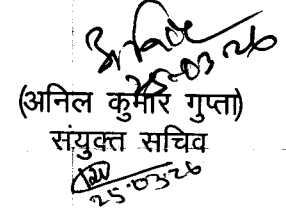 अनिल
25-03-26
(अनिल कुमार गुप्ता)
संयुक्त सचिव
25.03.26